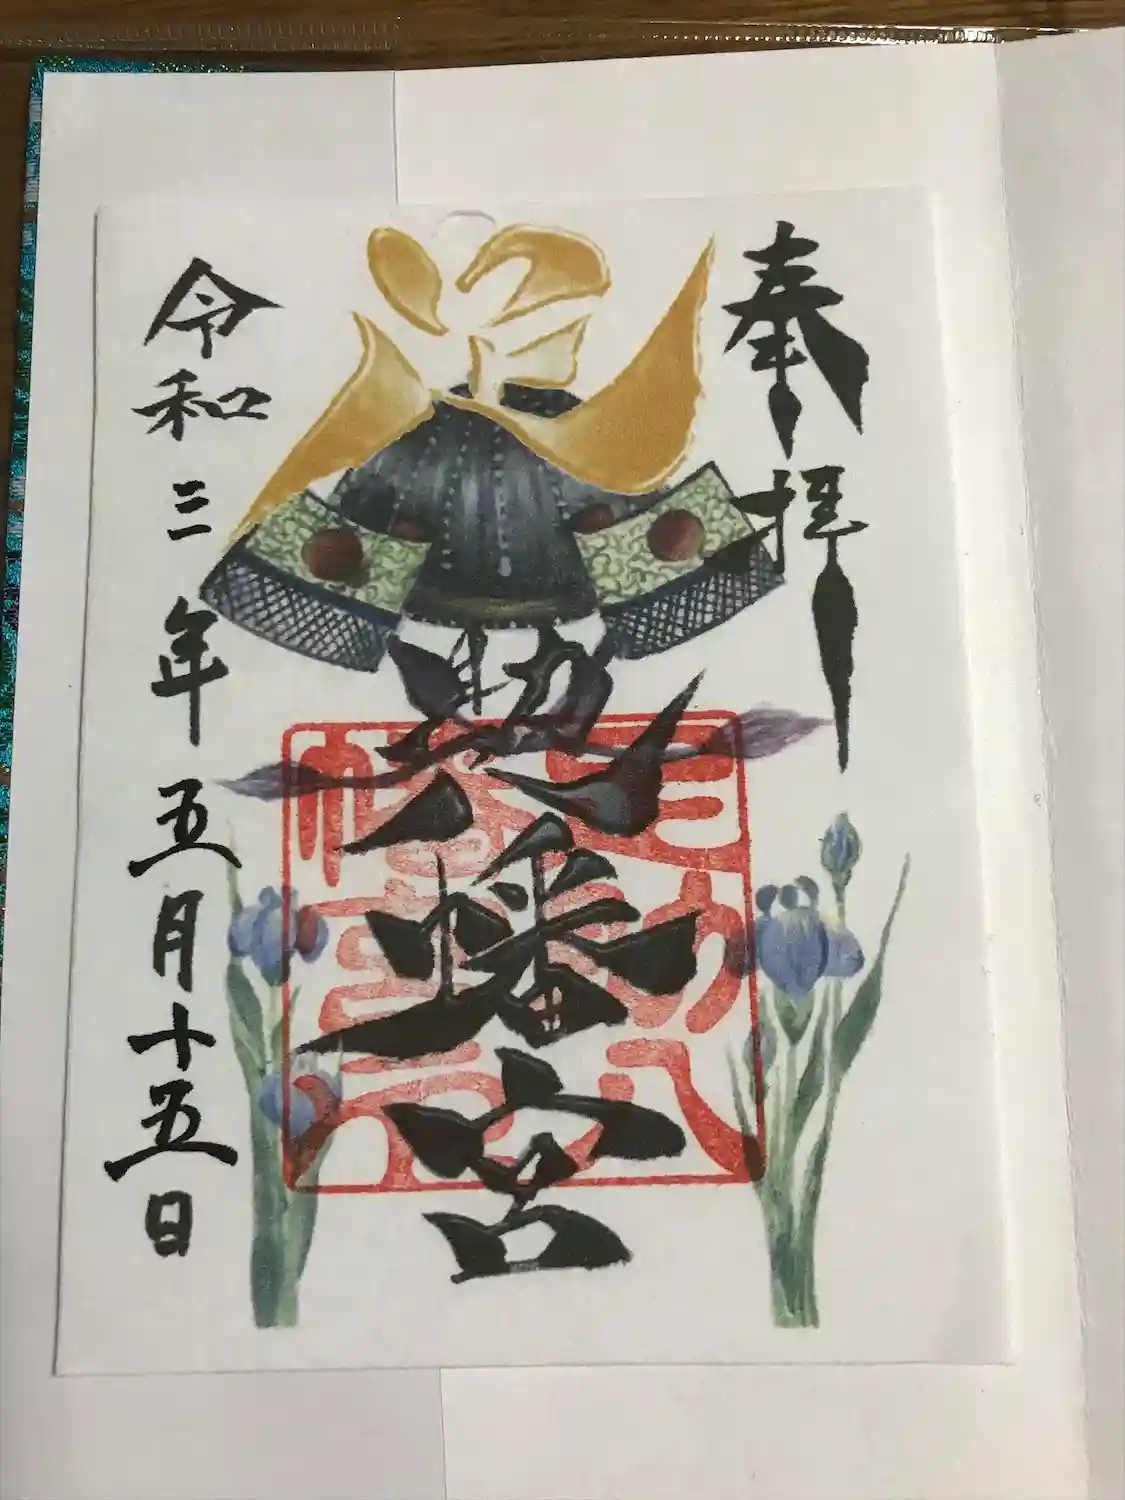 奉拝
助八幡宮
令和三年五月十五日